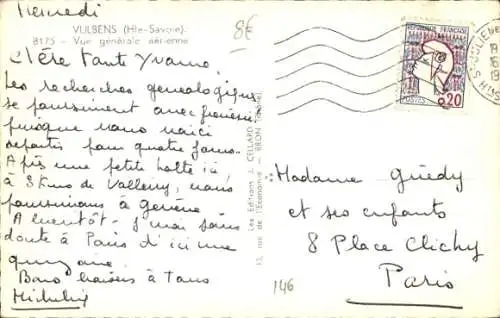 Mercredi
VULBENS (Hte-Savoie).
8175 - Vue générale aérienne
8€
Chère Tante Yvonne,
Les recherches généalogiques
se poursuivent avec frénésie
puisque nous voici
repartis pour quatre jours.
Après une petite halte ici,
à 8 kms de Valleiry, nous
poursuivons à Genève
A bientôt - j'irai sans
doute à Paris d'ici une
quinzaine.
Bons baisers à Tous
Les Editions J. CELLARD
13, rue de l'Economie - BRON (Rhône)
146
REPUBLIQUE FRANCAISE
0,20
POSTES
Madame Guédy
et ses enfants
8 Place Clichy
Paris